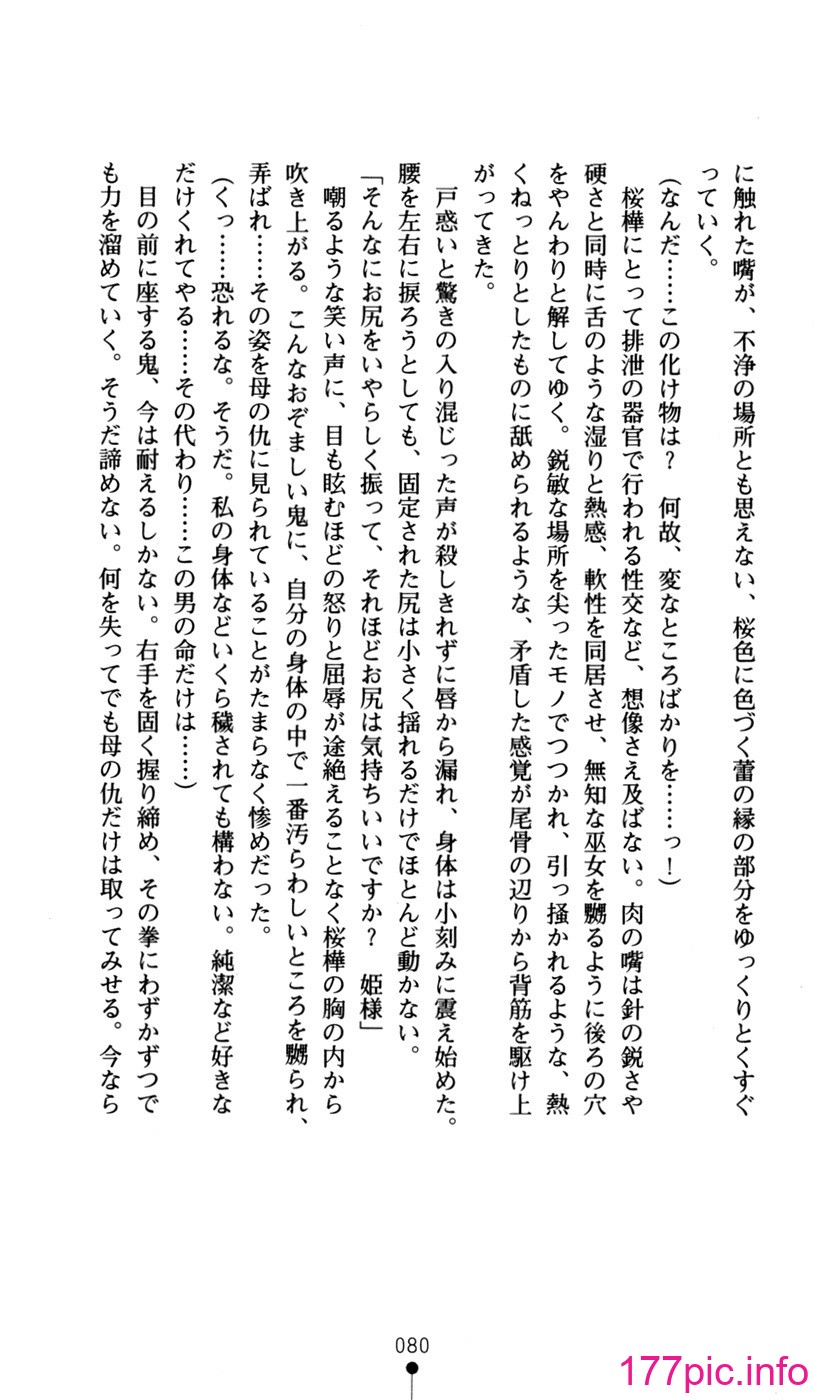 に触れた嘴が、不浄の場所とも思えない、桜色に色づく蕾の縁の部分をゆっくりとくすぐ
っていく。
(なんだ……この化け物は?　何故、変なところばかりを……っ!)
桜樺にとって排泄の器官で行われる性交など、想像さえ及ばない。肉の嘴は針の鋭さや
硬さと同時に舌のような湿りと熱感、軟性を同居させ、無知な巫女を嬲るように後ろの穴
をやんわりと解してゆく。鋭敏な場所を尖ったモノでつつかれ、引っ掻かれるような、熱
くねっとりとしたものに舐められるような、矛盾した感覚が尾骨の辺りから背筋を駆け上
がってきた。
戸惑いと驚きの入り混じった声が殺しきれずに唇から漏れ、身体は小刻みに震え始めた。
腰を左右に捩ろうとしても、固定された尻は小さく揺れるだけでほとんど動かない。
「そんなにお尻をいやらしく振って、それほどお尻は気持ちいいですか?　姫様」
嘲るような笑い声に、目も眩むほどの怒りと屈辱が途絶えることなく桜樺の胸の内から
吹き上がる。こんなおぞましい鬼に、自分の身体の中で一番汚らわしいところを嬲られ、
弄ばれ……その姿を母の仇に見られていることがたまらなく惨めだった。
(くっ……恐れるな。そうだ。私の身体などいくら穢されても構わない。純潔など好きな
だけくれてやる……その代わり……この男の命だけは……)
目の前に座する鬼、今は耐えるしかない。右手を固く握り締め、その拳にわずかずつで
も力を溜めていく。そうだ諦めない。何を失ってでも母の仇だけは取ってみせる。今なら
080
177pic.info